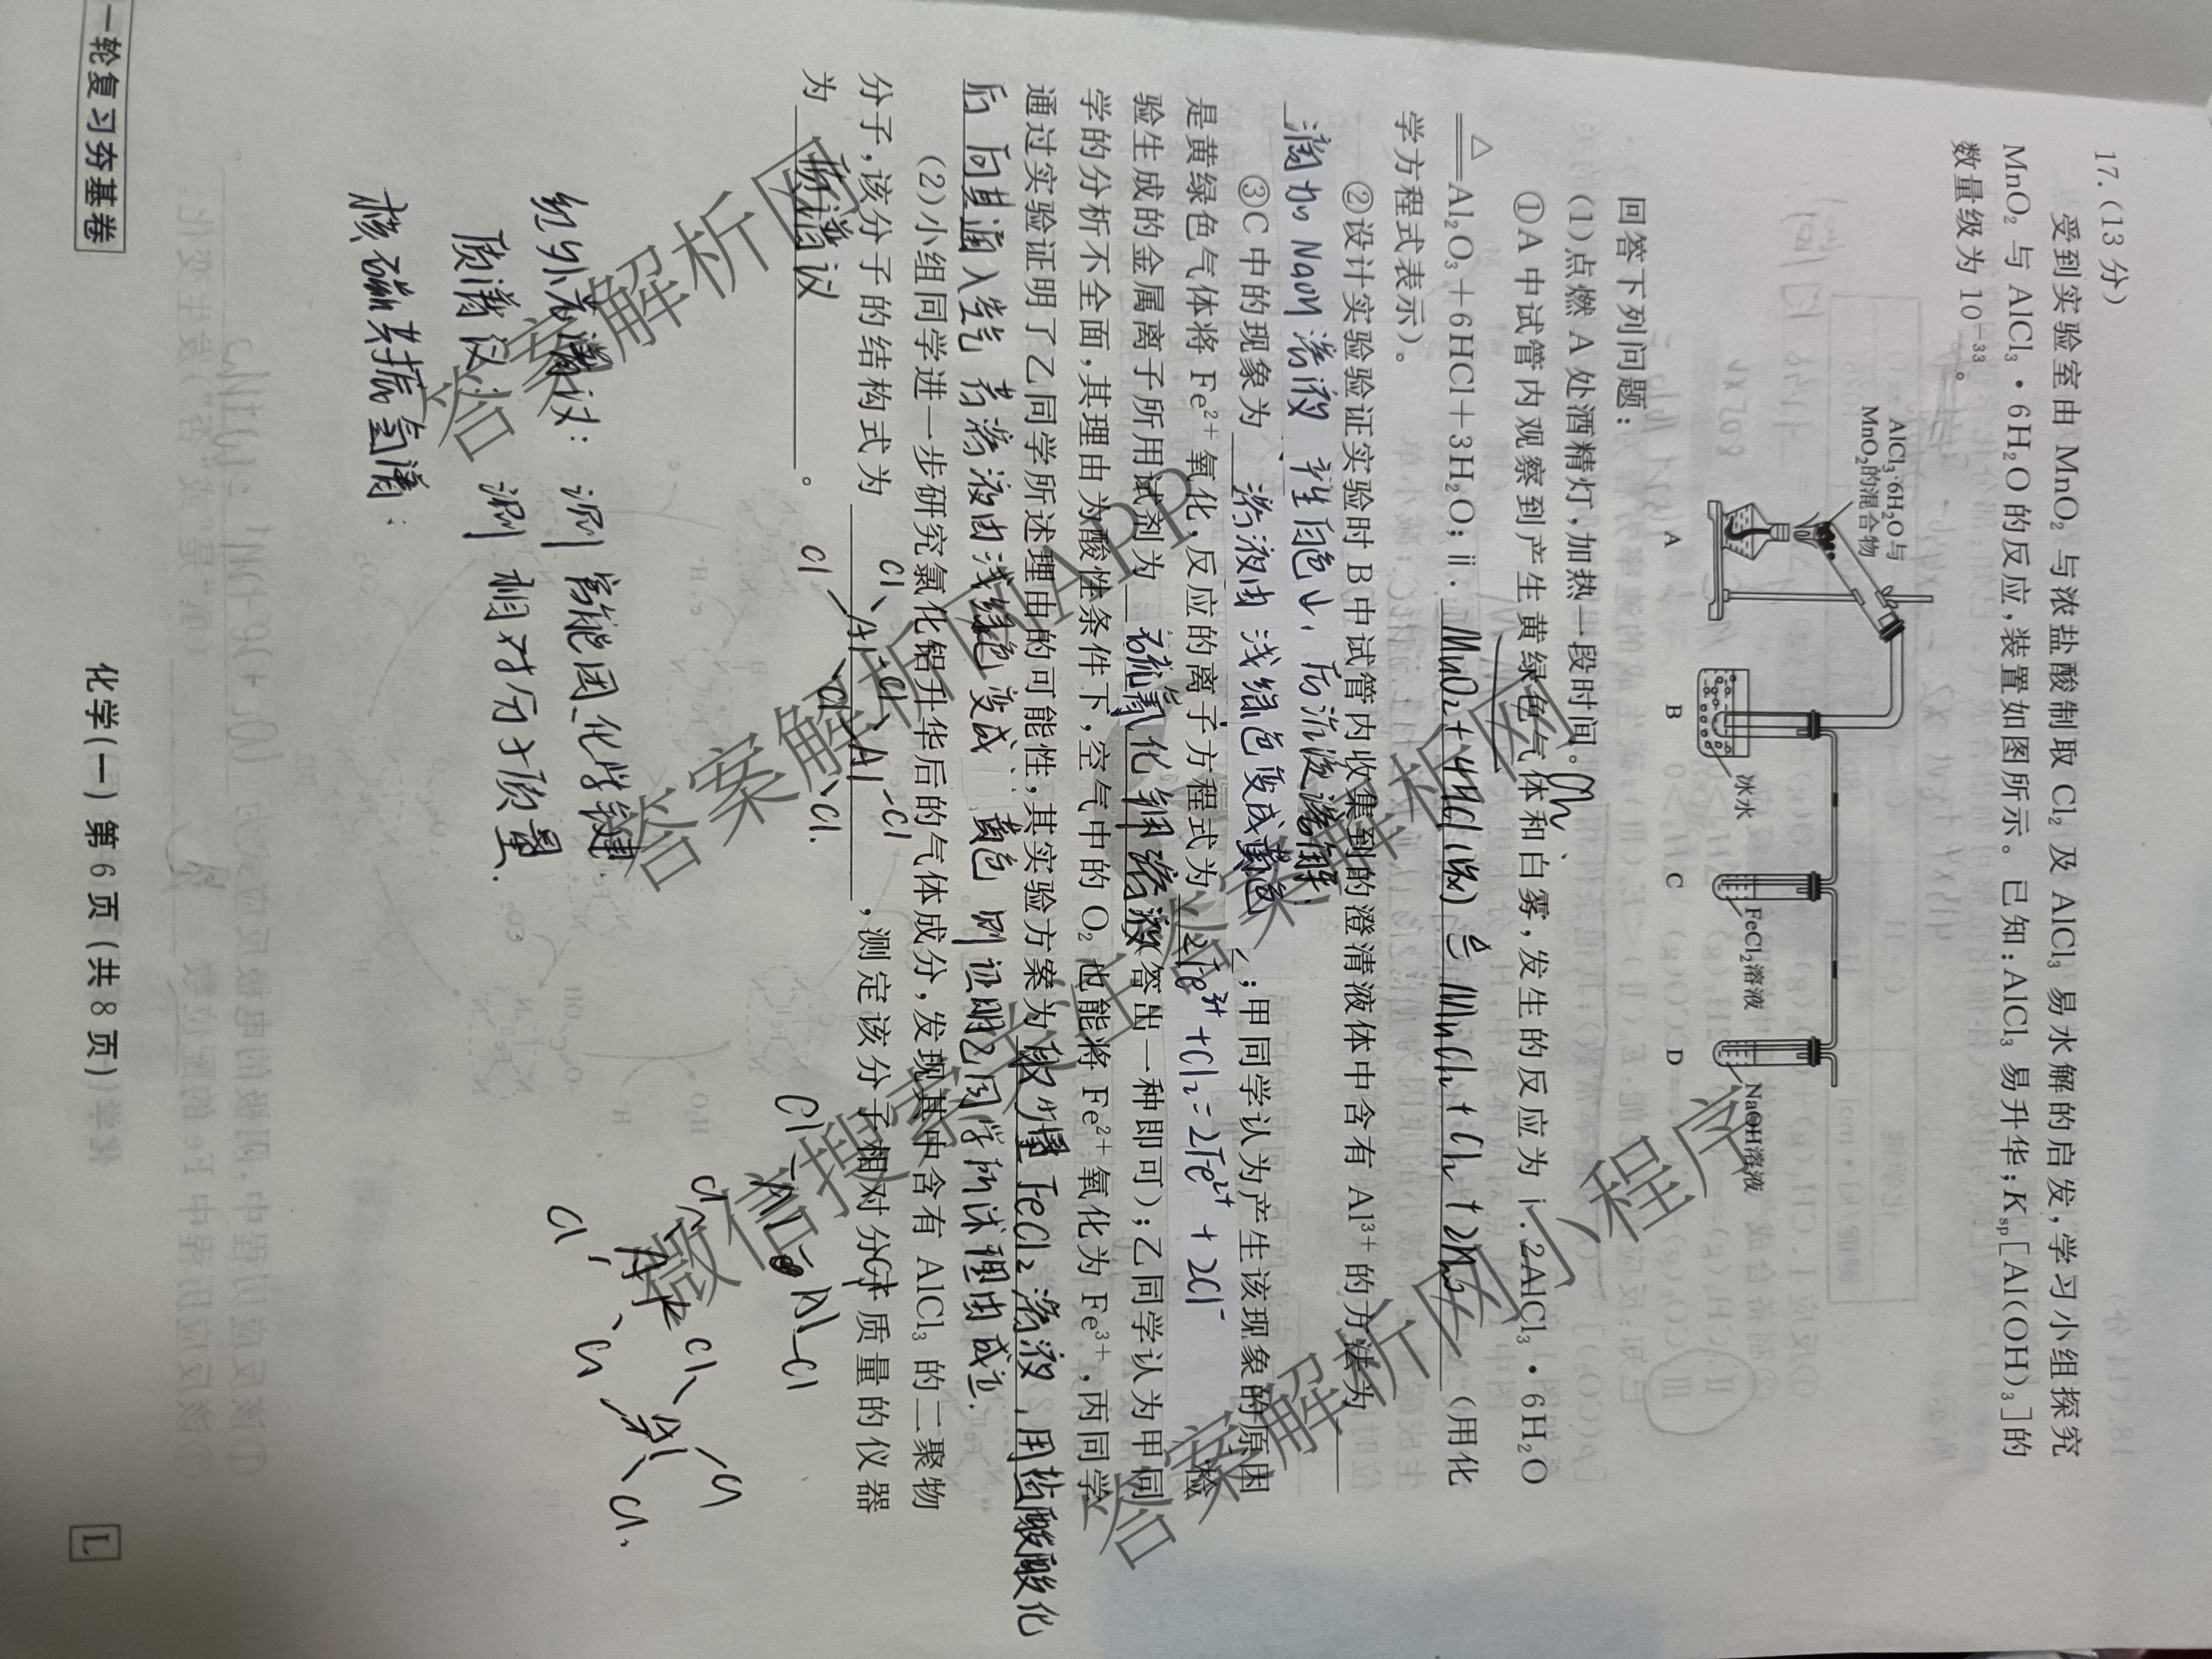 17.(13分)
受到实验室由 MnO₂ 与浓盐酸制取 Cl₂ 及 AlCl₃ 易水解的启发,学习小组探究
MnO₂ 与 AlCl₃·6H₂O 的反应,装置如图所示。已知:AlCl₃ 易升华;Kₛₚ[Al(OH)₃]的
数量级为 10⁻³³。
AlCl₃·6H₂O与
MnO₂的混合物
冰水
FeCl₂溶液
NaOH溶液
A
B
C
D
回答下列问题:
(1)点燃 A 处酒精灯,加热一段时间。
①A 中试管内观察到产生黄绿色气体和白雾,发生的反应为 ⅰ.2AlCl₃·6H₂O
△
══Al₂O₃+6HCl+3H₂O;ⅱ. MnO₂+4HCl(浓) △ MnCl₂+Cl₂+2H₂O (用化
学方程式表示)。
②设计实验验证实验时 B 中试管内收集到的澄清液体中含有 Al³⁺ 的方法为
滴加 NaOH 溶液 产生白色↓,后沉淀溶解.
③C 中的现象为 溶液由浅绿色变成黄色 ;甲同学认为产生该现象的原因
是黄绿色气体将 Fe²⁺ 氧化,反应的离子方程式为 2Fe³⁺+Cl₂=2Fe²⁺+2Cl⁻ ,检
验生成的金属离子所用试剂为 硫氰化钾溶液 (答出一种即可);乙同学认为甲同
学的分析不全面,其理由为酸性条件下,空气中的 O₂ 也能将 Fe²⁺ 氧化为 Fe³⁺,丙同学
通过实验证明了乙同学所述理由的可能性,其实验方案为 取少量 FeCl₂ 溶液,用盐酸酸化
后 向其通入空气 若溶液由浅绿色变成 黄色 则证明乙同学所述理由成立.
(2)小组同学进一步研究氯化铝升华后的气体成分,发现其中含有 AlCl₃ 的二聚物
分子,该分子的结构式为 Cl Al Cl Al Cl Cl Cl Cl ,测定该分子相对分子质量的仪器
为 质谱仪 。
红外光谱仪: 测 官能团、化学键
质谱仪 测 相对分子质量.
核磁共振氢谱:
Cl Al Cl Al Cl
Cl Al Cl Al Cl Cl Cl Cl.
一轮复习夯基卷
化学(一)第 6 页(共 8 页)
L
微信搜
答案解析圈
小程序